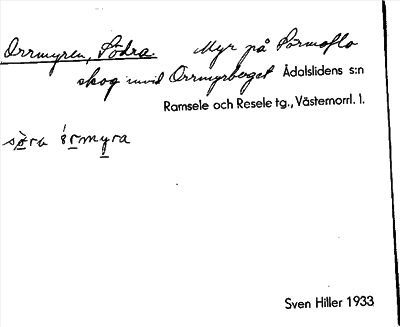 Orrmyren, Södra. Myr på Pärmoflo
skog invid Orrmyrberget Ådalslidens s:n
Ramsele och Resele tg., Västernorrl. l.
söra òrmyra
Sven Hiller 1933